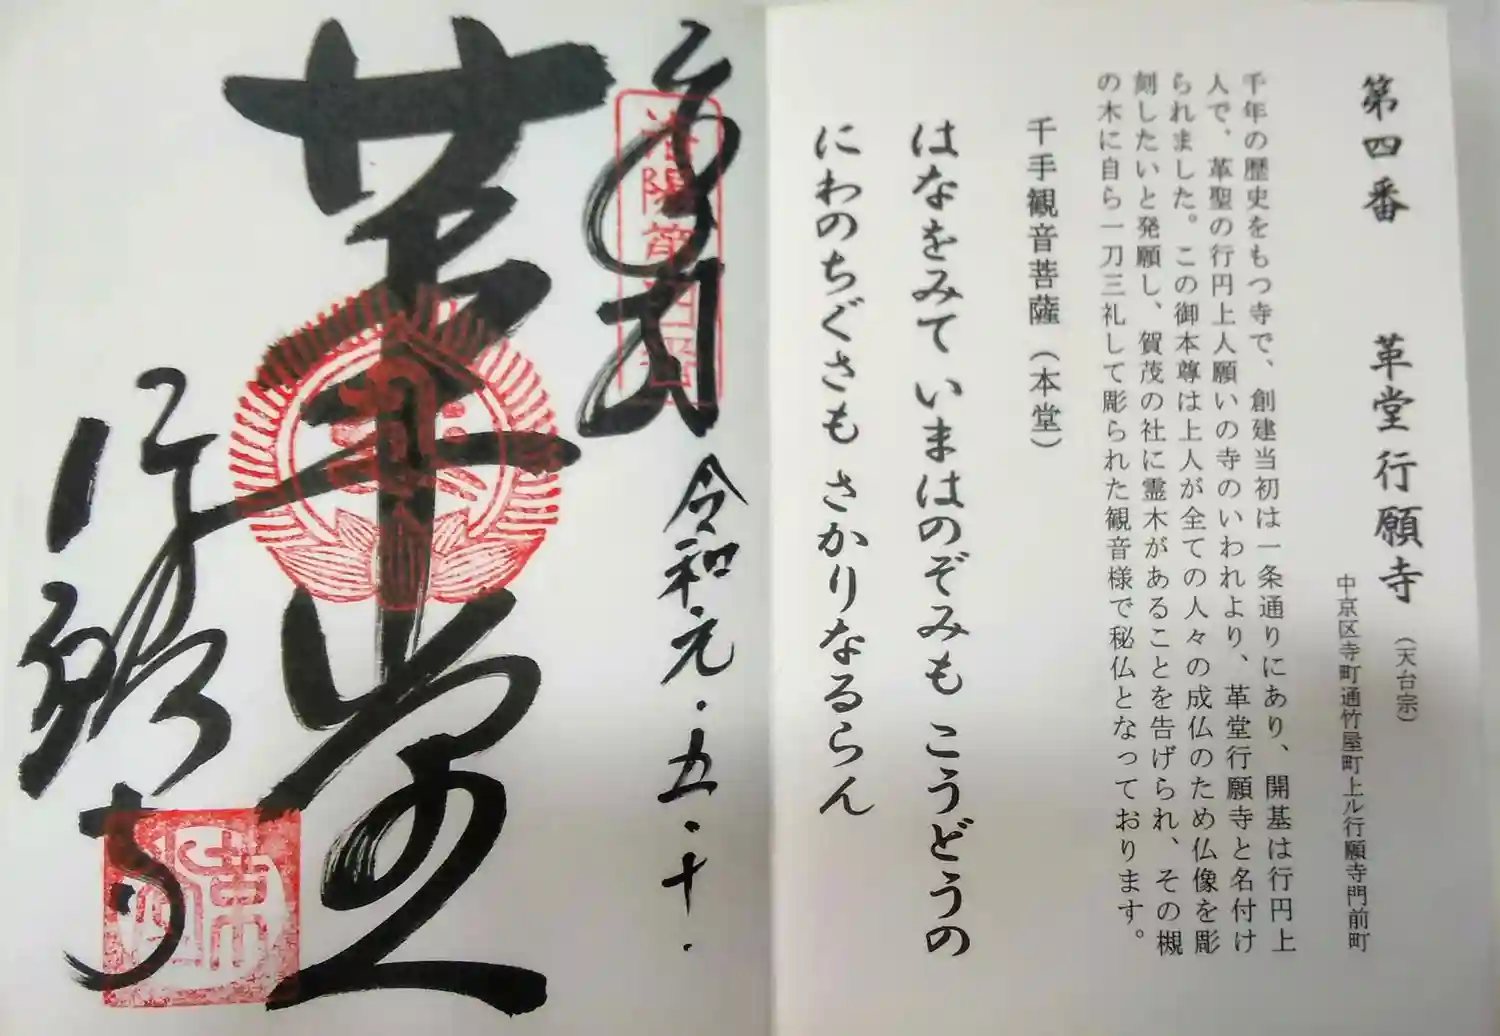 第四番 革堂行願寺（天台宗）
中京区寺町通竹屋町上ル行願寺門前町
千年の歴史をもつ寺で、創建当初は一条通りにあり、開基は行円上
人で、革聖の行円上人願いの寺のいわれより、革堂行願寺と名付け
られました。この御本尊は上人が全ての人々の成仏のため仏像を彫
刻したいと発願し、賀茂の社に霊木があることを告げられ、その槻
の木に自ら一刀三礼して彫られた観音様で秘仏となっております。
千手観音菩薩（本堂）
はなをみて いまはのぞみも こうどうの
にわのちぐさも さかりなるらん
奉拝
洛陽第四番
令和元・五・十・
革堂
行願寺